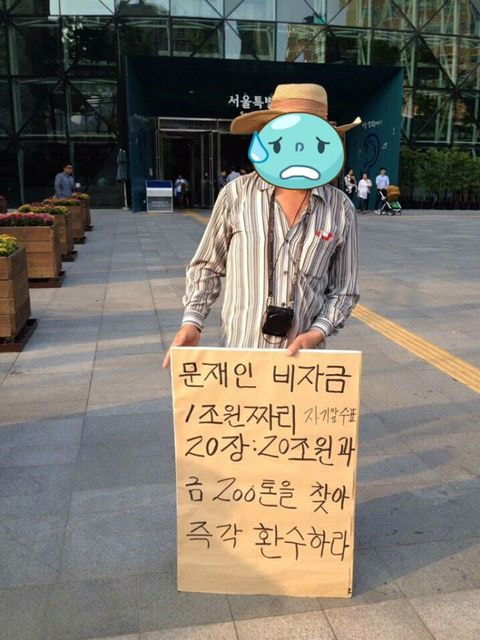 서울특별
문재인 비자금
1조원짜리 자기앞수표
20장:20조원과
금 200톤을 찾아
즉각 환수하라